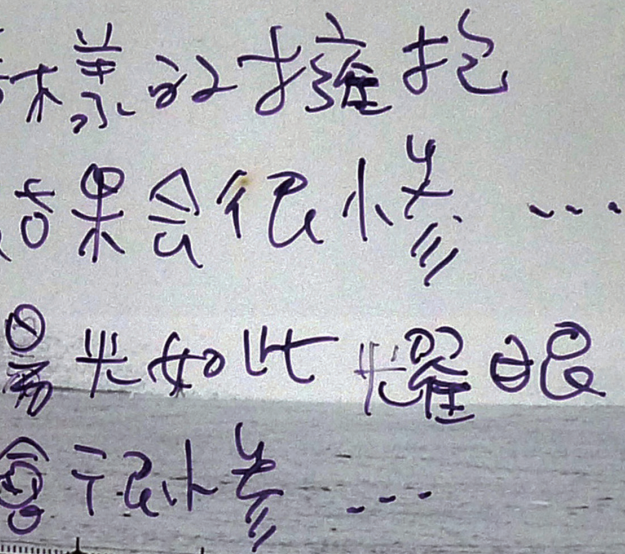 樣的擁抱
結果會很慘…
陽光如此耀眼
會很慘…